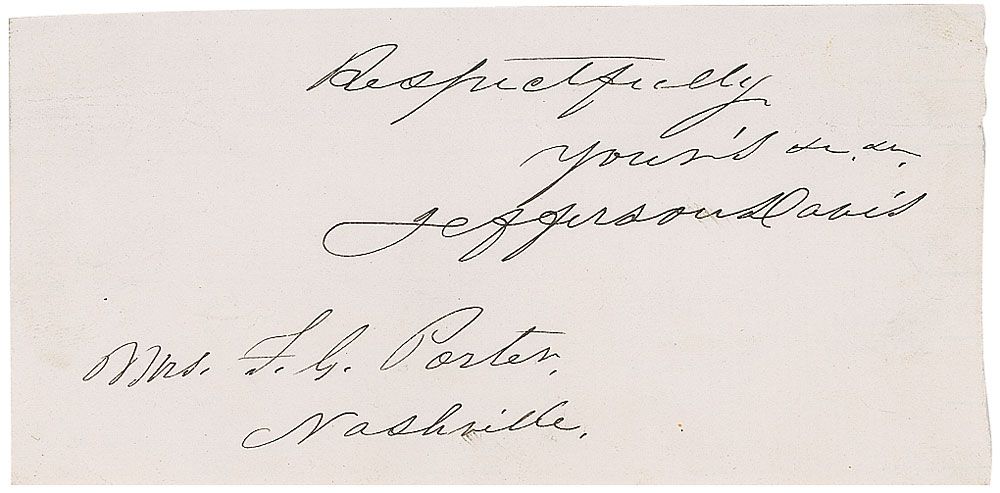 Respectfully
your's &c. &c.
Jefferson Davis
Mrs. F. G. Porter,
Nashville.